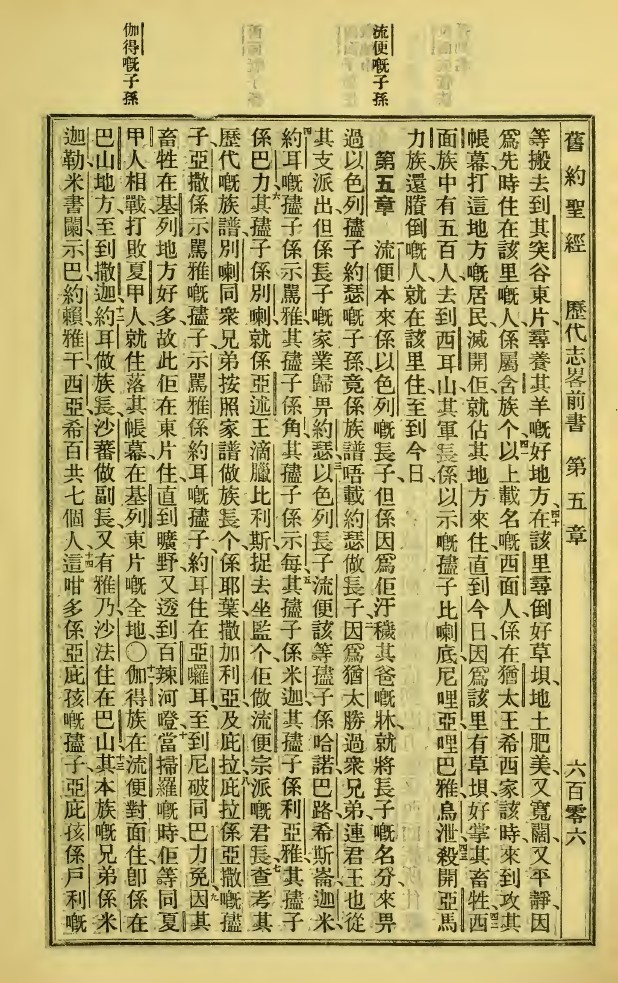 舊約聖經 歷代志畧前書 第五章 六百零六
等搬去到其突谷東片、尋養其羊嘅好地方、四十在該里尋倒好草埧、地土肥美、又寬闊、又平靜、因
爲先時住在該里嘅人、係屬含族个、四一以上載名嘅西面人、係在猶太王希西家該時、來到攻其
帳幕、打這地方嘅居民、滅開佢、就佔其地方來住、直到今日、因爲該里有草埧好掌其畜牲、四二西
面族中有五百人、去到西耳山、其軍長係以示嘅孻子、比喇底、尼哩亞、哩巴雅、烏泄、四三殺開亞馬
力族還賸倒嘅人、就在該里住、至到今日、
流便嘅子孫
第五章 一流便本來係以色列嘅長子、但係因爲佢汙穢其爸嘅牀、就將長子嘅名分、來畀
過以色列孻子約瑟嘅子孫、竟係族譜唔載約瑟做長子、二因爲猶太勝過衆兄弟、連君王也從
其支派出、但係長子嘅家業歸畀約瑟、三以色列長子流便該等孻子、係哈諾、巴路、希斯崙、迦米、
四約耳嘅孻子、係示罵雅、其孻子係角、其孻子係示每、五其孻子係米迦、其孻子係利亞雅、其孻子
係巴力、六其孻子係別喇、就係亞述王滴臘比利斯捉去坐監个、佢做流便宗派嘅君長、七查考其
歷代嘅族譜、別喇同衆兄弟、按照家譜、做族長个、係耶葉、撒加利亞、八及庇拉、庇拉係亞撒嘅孻
子、亞撒係示罵雅嘅孻子、示罵雅係約耳嘅孻子、約耳住在亞囉耳、至到尼破同巴力免、九因其
畜牲在基列地方好多、故此佢在東片住、直到曠野、又透到百辣河嶝、十當掃羅嘅時、佢等同夏
甲人相戰、打敗夏甲人、就住落其帳幕、在基列東片嘅全地、
伽得嘅子孫
〇十一伽得族在流便對面住、卽係在
巴山地方、至到撒迦、十二約耳做族長、沙蕃做副長、又有雅乃、沙法、住在巴山、十三其本族嘅兄弟、係米
迦勒、米書闌、示巴、約賴、雅干、西亞、希百、共七個人、十四這咁多係亞庇孩嘅孻子、亞庇孩係戶利嘅